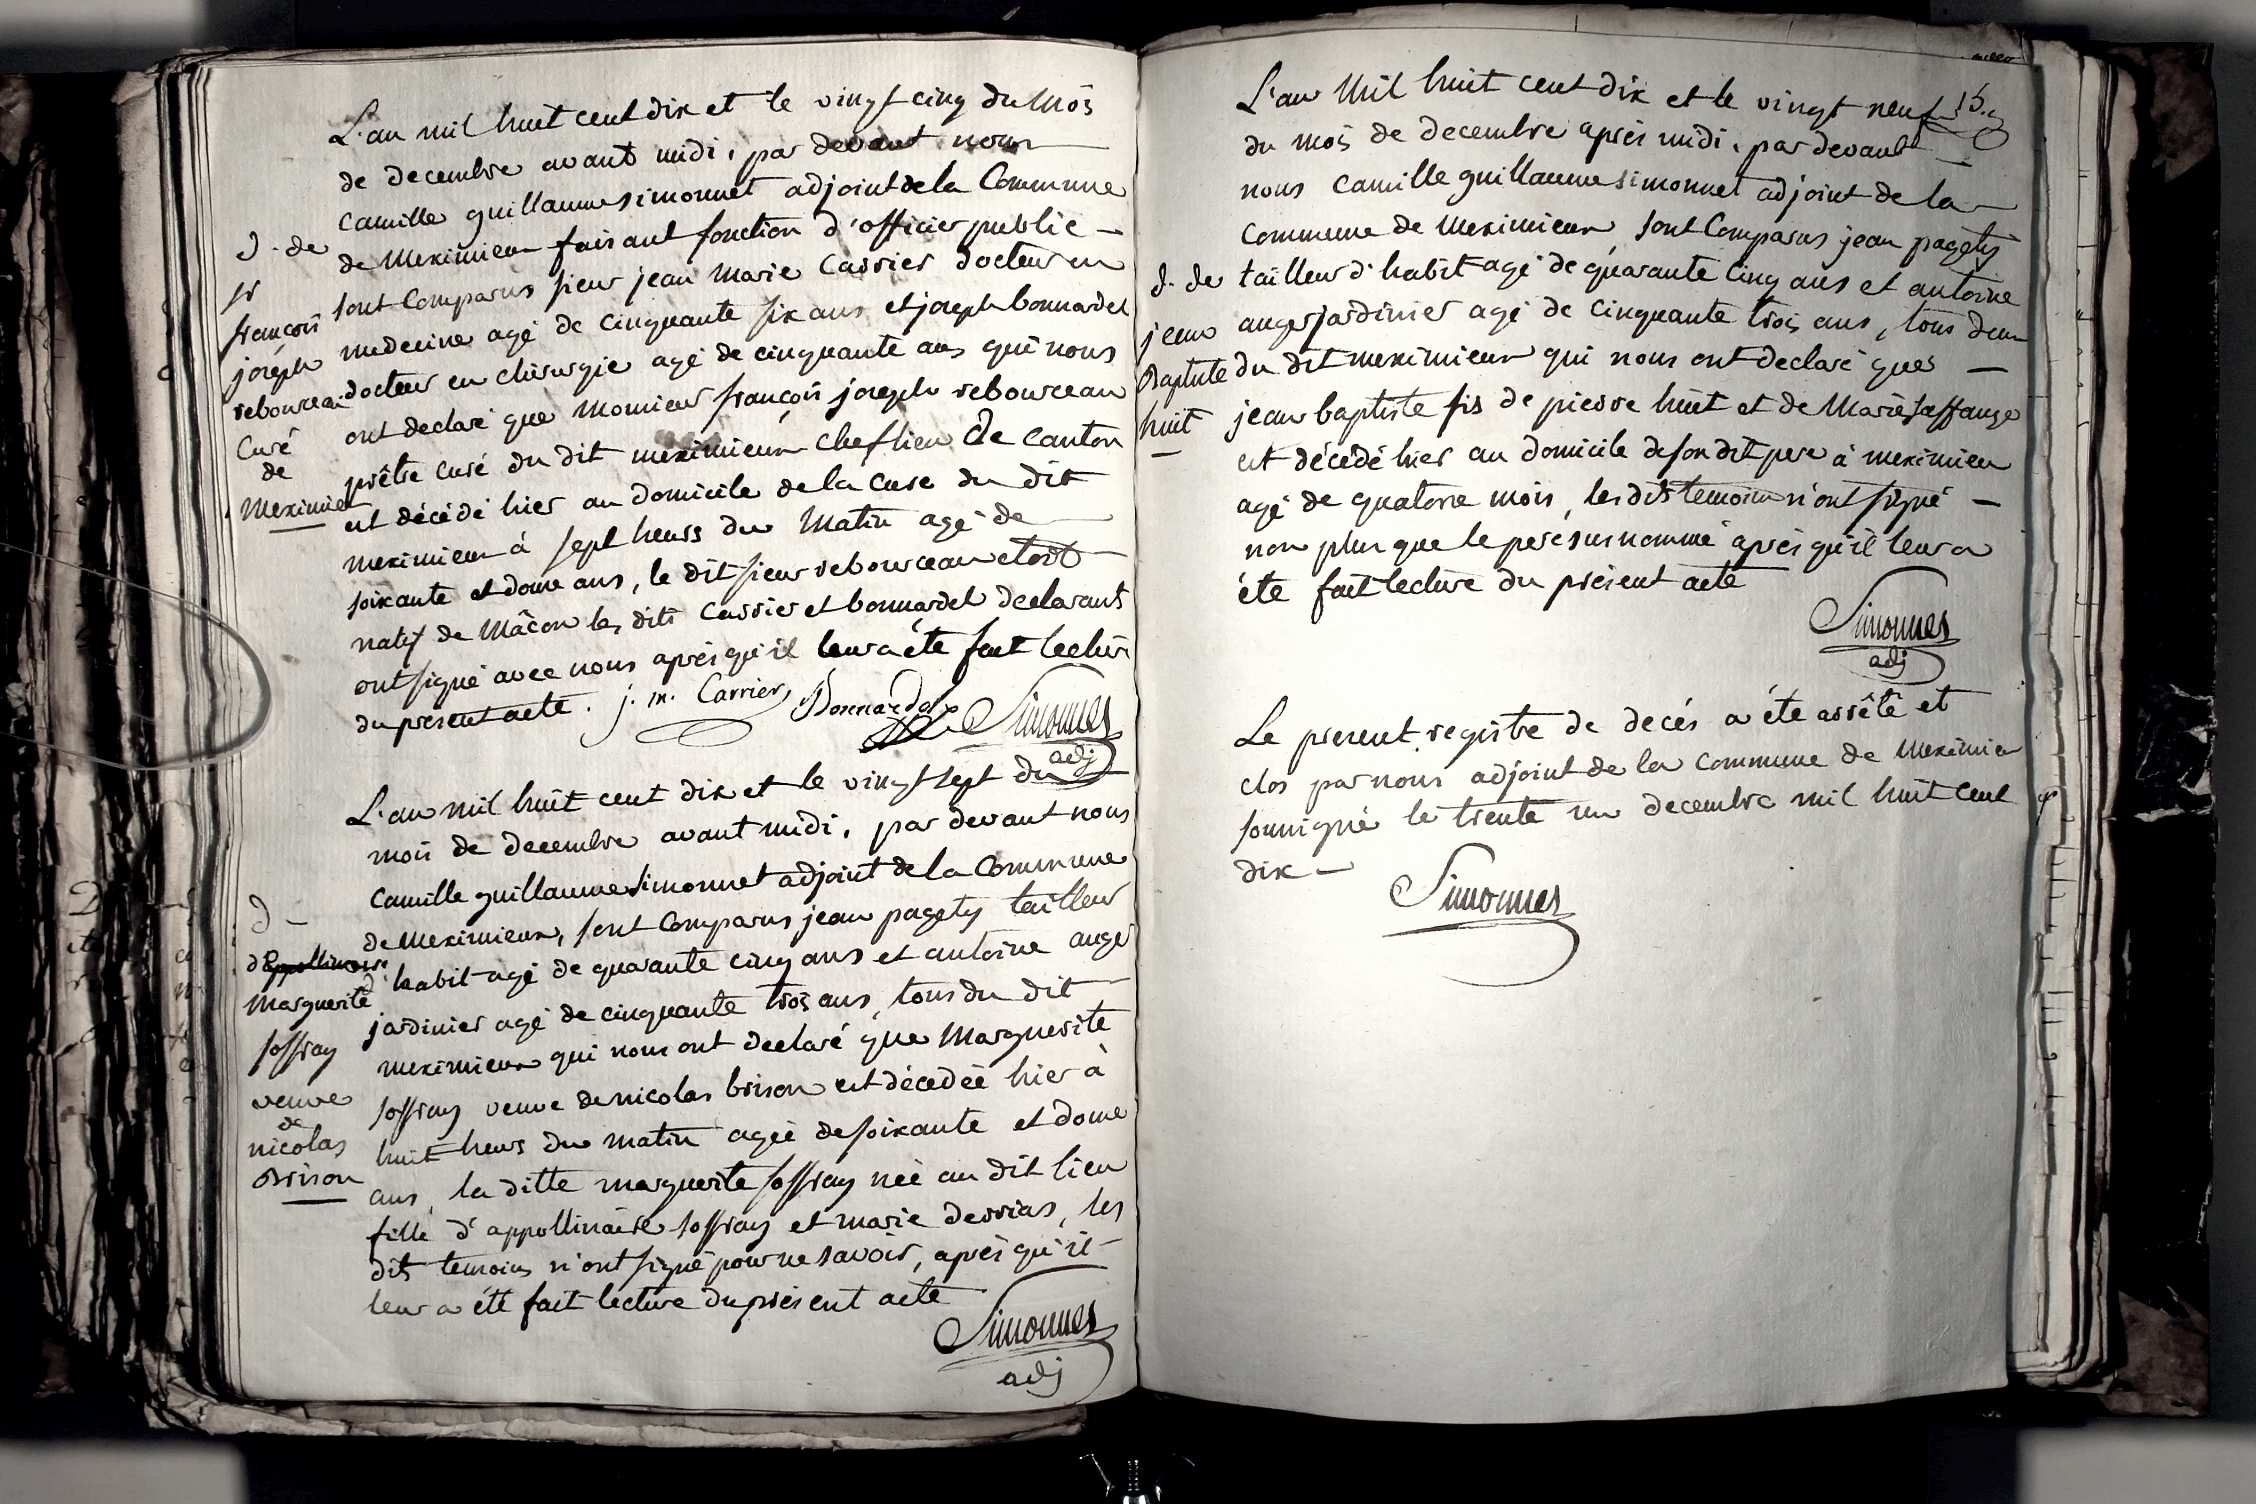 L'an mil huit cent dix et le vingt cinq du mois
de decembre avant midi, par devant nous
Camille guillaume simonnet adjoint de la Commune
de Meximieux faisant fonction d'officier public
sont Comparus sieur jean Marie Carrier docteur en
medecine agé de cinquante six ans et joseph bonnardel
docteur en chirurgie agé de cinquante ans qui nous
ont declaré que Monsieur françois joseph rebourceau
prêtre curé du dit meximieux chef lieu de canton
est décédé hier au domicile de la cure du dit
meximieux à sept heures du Matin agé de
soixante et douze ans, le dit sieur rebourceau etoit
natif de Mâcon les dits Carrier et bonnardel declarants
ont signé avec nous après qu'il leur a été fait lecture
du present acte. j. m. Carrier Bonnardel Simonnet
adj
D. de
sr
françois
joseph
rebourceau
Curé
de
Meximieux
L'an mil huit cent dix et le vingt sept du
mois de decembre avant midi, par devant nous
Camille guillaume Simonnet adjoint de la Commune
de Meximieux, sont Comparus jean pagety tailleur
d'habit agé de quarante cinq ans et antoine auger
jardinier agé de cinquante trois ans, tous du dit
meximieux qui nous ont declaré que Marguerite
soffray veuve de nicolas brison est décédée hier à
huit heurs du matin agée de soixante et douze
ans, la ditte marguerite soffray née au dit lieu
fille d'appollinaire soffray et marie derrias, les
dits temoins n'ont signé pour ne savoir, après qu'il
leur a été fait lecture du présent acte
Simonnet
adj
D
d'appollinaire
Marguerite
soffray
veuve
de
nicolas
Brison
15.
L'an Mil huit cent dix et le vingt neuf
du mois de decembre après midi, par devant
nous Camille guillaume simonnet adjoint de la
Commune de Meximieux, sont Comparus jean pagety
tailleur d'habit agé de quarante cinq ans et antoine
auger jardinier agé de cinquante trois ans, tous deux
du dit meximieux qui nous ont declaré que
jean baptiste fis de pierre huit et de Marie saffange
est décédé hier au domicile de son dit pere à meximieu
agé de quatorze mois, les dits temoins n'ont signé
non plus que le pere surnommé après qu'il leur a
été fait lecture du présent acte
Simonnet
adj
d. de
jean
Baptiste
huit
Le present registre de decés a été arrêté et
clos par nous adjoint de la commune de Meximieu
soussigné le trente un decembre mil huit cent
dix
Simonnet